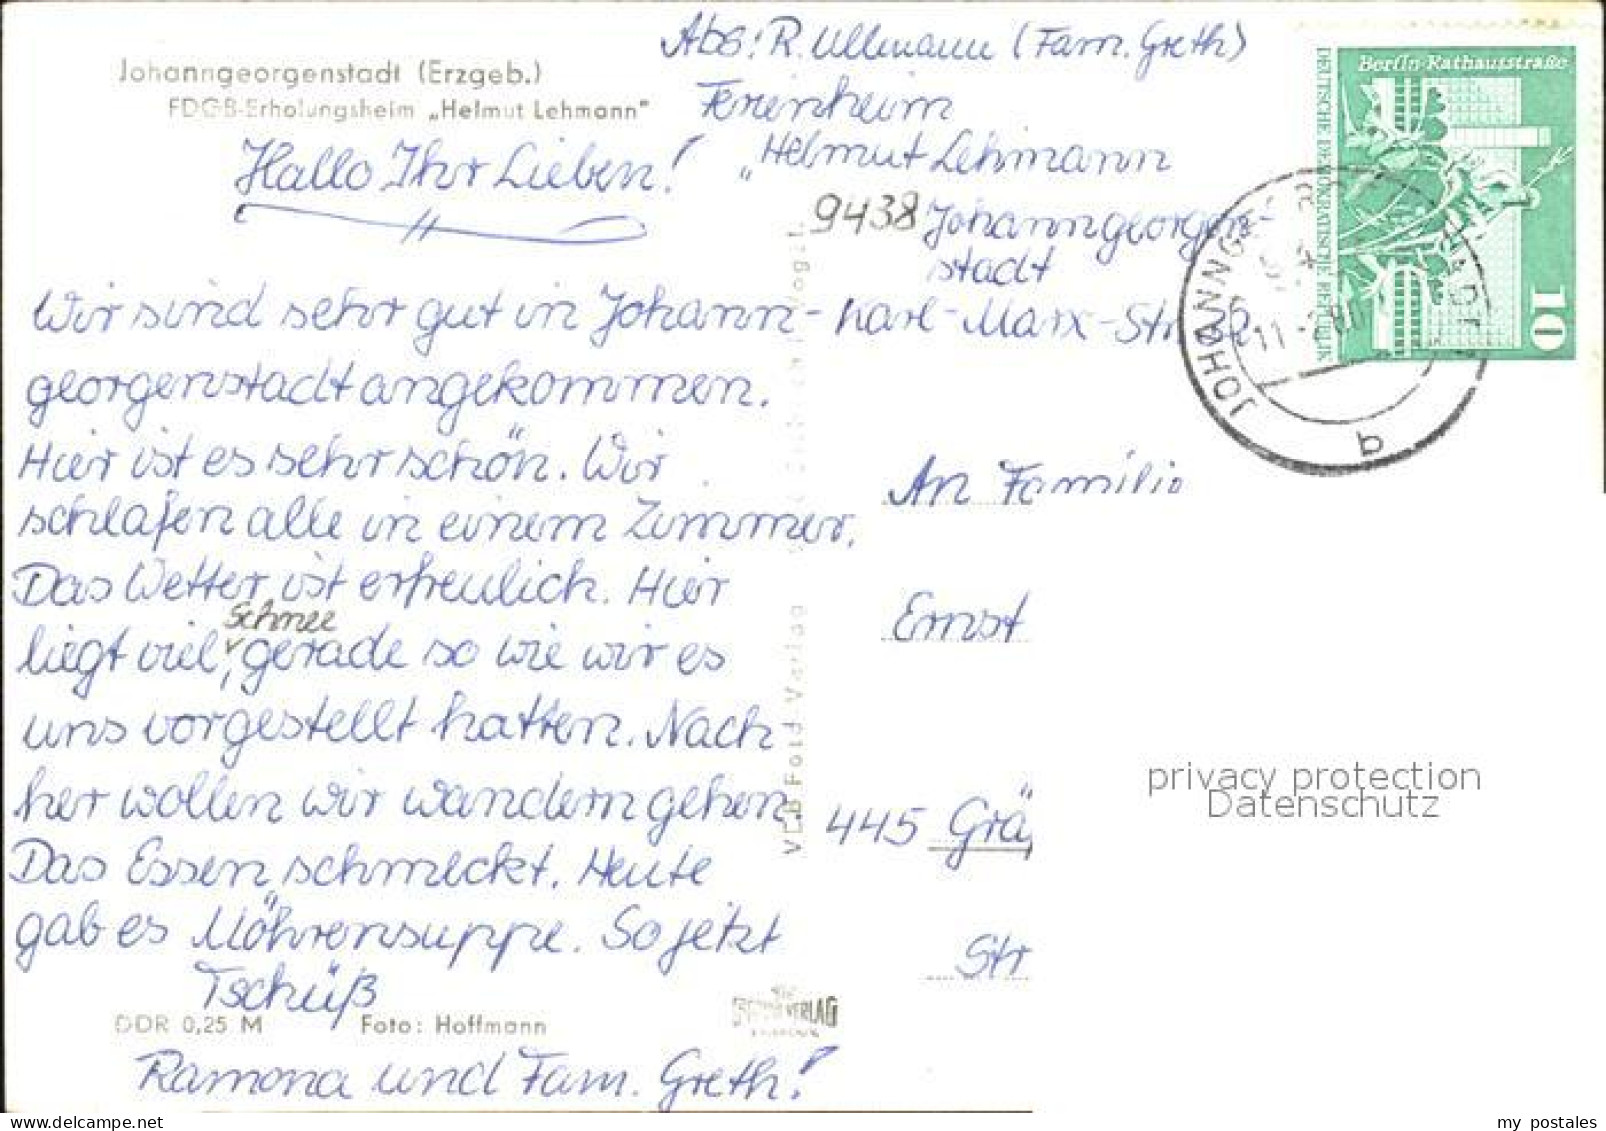 Johanngeorgenstadt (Erzgeb.)
FDGB-Erholungsheim „Helmut Lehmann"
Hallo Ihr Lieben!
Wir sind sehr gut in Johann-
georgenstadt angekommen.
Hier ist es sehr schön. Wir
schlafen alle in einem Zimmer.
Das Wetter ist erfreulich. Hier
Schnee
liegt viel, gerade so wie wir es
uns vorgestellt hatten. Nach
her wollen wir wandern gehen.
Das Essen schmeckt. Heute
gab es Möhrensuppe. So jetzt
Tschüß
DDR 0,25 M Foto: Hoffmann
Ramona und Fam. Greth!
VEB Foto-Verlag
VERLAG
Abs: R. Ullmann (Fam. Greth)
Ferienheim
„Helmut Lehmann
9438 Johanngeorgen-
stadt
Karl-Marx-Str.
Berlin-Rathausstraße
DEUTSCHE DEMOKRATISCHE REPUBLIK
10
b
An Familie
Ernst
445 Grä
Str
privacy protection
Datenschutz
my postales